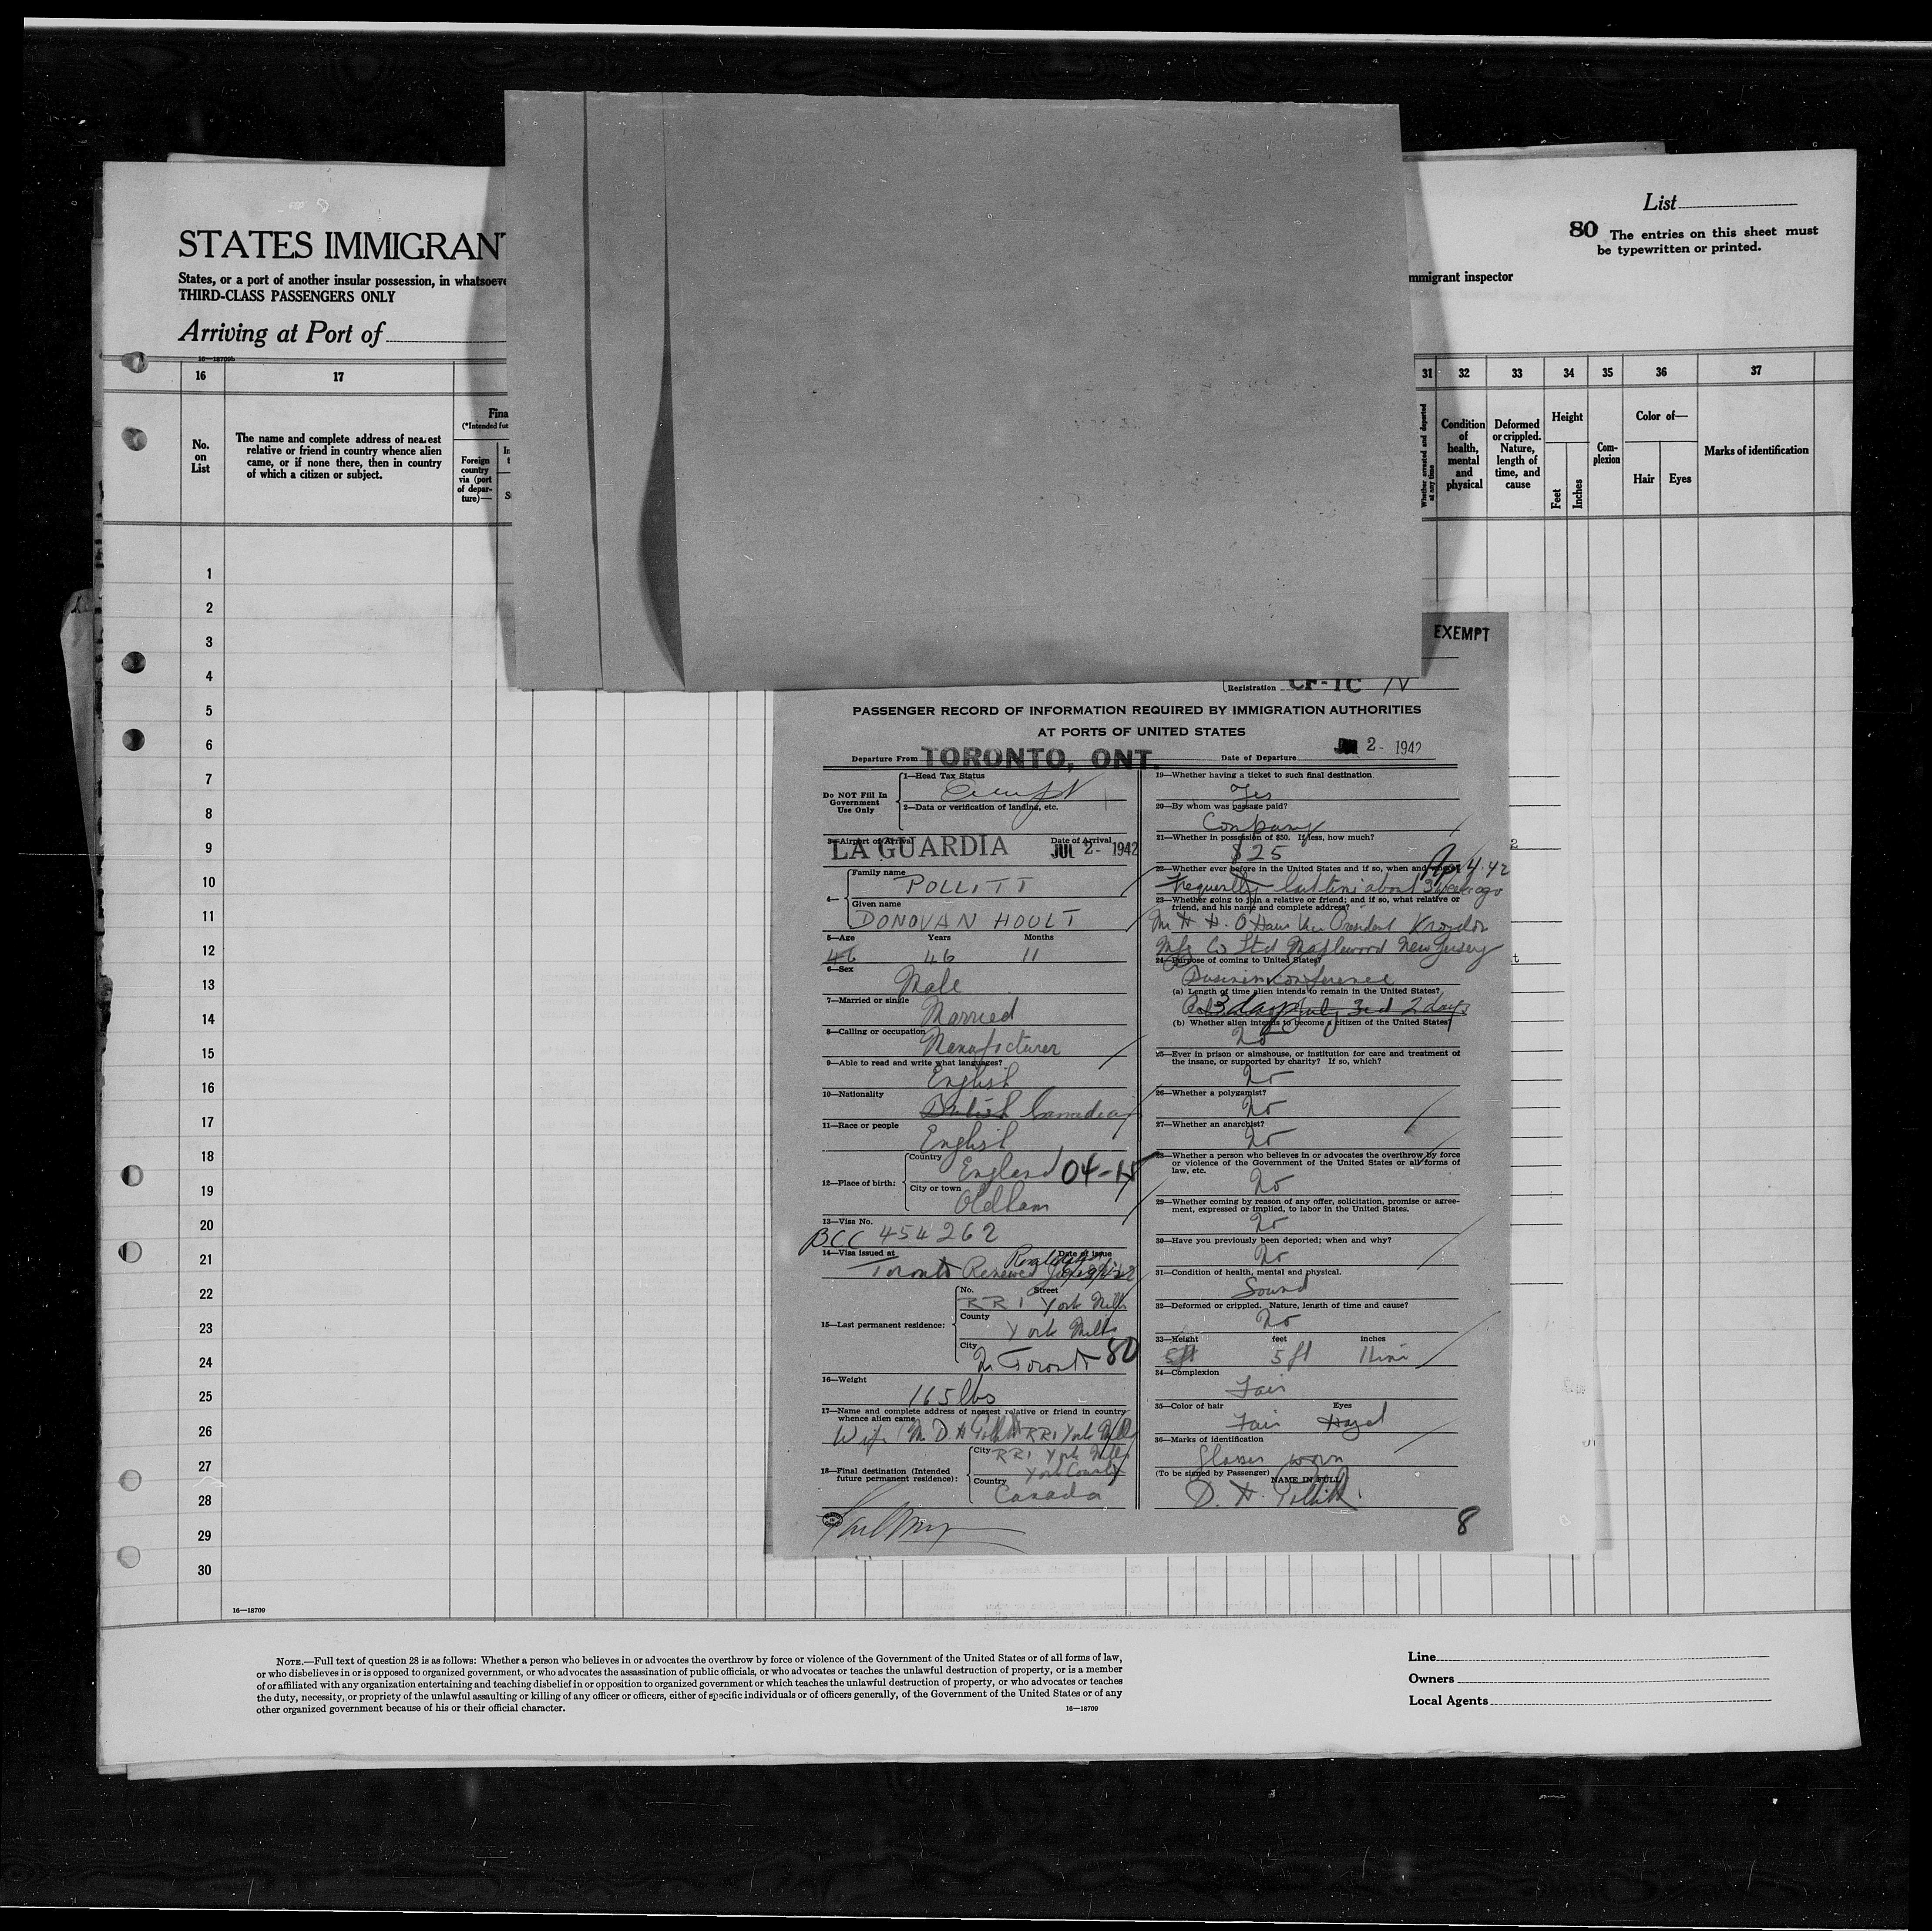 List
80 The entries on this sheet must
be typewritten or printed.
STATES IMMIGRAN
States, or a port of another insular possession, in whatsoeve
mmigrant inspector
THIRD-CLASS PASSENGERS ONLY
Arriving at Port of
16—18709b
16
17
31
32
33
34
35
36
37
No.
on
List
The name and complete address of nearest
relative or friend in country whence alien
came, or if none there, then in country
of which a citizen or subject.
Fina
(*Intended fut
Foreign
country
via (port
of depar-
ture)—
Whether arrested and deported
at any time
Condition
of
health,
mental
and
physical
Deformed
or crippled.
Nature,
length of
time, and
cause
Height
Feet
Inches
Com-
plexion
Color of—
Hair
Eyes
Marks of identification
1
2
3
4
5
6
7
8
9
10
11
12
13
14
15
16
17
18
19
20
21
22
23
24
25
26
27
28
29
30
16—18709
EXEMPT
Registration CF-1C IV
PASSENGER RECORD OF INFORMATION REQUIRED BY IMMIGRATION AUTHORITIES
AT PORTS OF UNITED STATES
Departure From TORONTO, ONT.
Date of Departure 2- 1942
Do NOT Fill In
Government
Use Only
1—Head Tax Status
Exempt
2—Data or verification of landing, etc.
3—Airport of Arrival
Date of Arrival
LA GUARDIA JUL 2- 1942
4—
Family name
POLLITT
Given name
DONOVAN HOULT
5—Age Years Months
46 46 11
6—Sex
Male
7—Married or single
Married
8—Calling or occupation
Manufacturer
9—Able to read and write what languages?
English
10—Nationality
British Canadian
11—Race or people
English
12—Place of birth:
Country
England 04-15
City or town
Oldham
13—Visa No.
BCC 454262
14—Visa issued at Date of issue
Toronto Renewed
15—Last permanent residence:
No. Street
RR1 York Mills
County
York Mills
City
N Toronto 80
16—Weight
165 lbs
17—Name and complete address of nearest relative or friend in country
whence alien came
Wife (M D. H Pollitt RR1 York Mills
18—Final destination (Intended
future permanent residence):
City
RR1 York Mills
York County
Country
Canada
19—Whether having a ticket to such final destination
Yes
20—By whom was passage paid?
Company
21—Whether in possession of $50. If less, how much?
$25
22—Whether ever before in the United States and if so, when and where?
Apr 4.42
Frequently last time about 3 weeks ago
23—Whether going to join a relative or friend; and if so, what relative or
friend, and his name and complete address?
Mr H H. O Vice President Kroydon
Mfg Co Ltd Maplewood New Jersey
24—Purpose of coming to United States?
Business conference
(a) Length of time alien intends to remain in the United States?
3 days July 3rd 2 days
(b) Whether alien intends to become a citizen of the United States?
No
25—Ever in prison or almshouse, or institution for care and treatment of
the insane, or supported by charity? If so, which?
No
26—Whether a polygamist?
No
27—Whether an anarchist?
No
28—Whether a person who believes in or advocates the overthrow by force
or violence of the Government of the United States or all forms of
law, etc.
No
29—Whether coming by reason of any offer, solicitation, promise or agree-
ment, expressed or implied, to labor in the United States.
No
30—Have you previously been deported; when and why?
No
31—Condition of health, mental and physical.
Sound
32—Deformed or crippled. Nature, length of time and cause?
No
33—Height feet inches
5ft 5 ft 11 ins
34—Complexion
Fair
35—Color of hair Eyes
Fair Hazel
36—Marks of identification
Glasses worn
(To be signed by Passenger) NAME IN FULL
D. H. Pollitt
8
NOTE.—Full text of question 28 is as follows: Whether a person who believes in or advocates the overthrow by force or violence of the Government of the United States or of all forms of law,
or who disbelieves in or is opposed to organized government, or who advocates the assassination of public officials, or who advocates or teaches the unlawful destruction of property, or is a member
of or affiliated with any organization entertaining and teaching disbelief in or opposition to organized government or which teaches the unlawful destruction of property, or who advocates or teaches
the duty, necessity, or propriety of the unlawful assaulting or killing of any officer or officers, either of specific individuals or of officers generally, of the Government of the United States or of any
other organized government because of his or their official character.
16—18709
Line
Owners
Local Agents